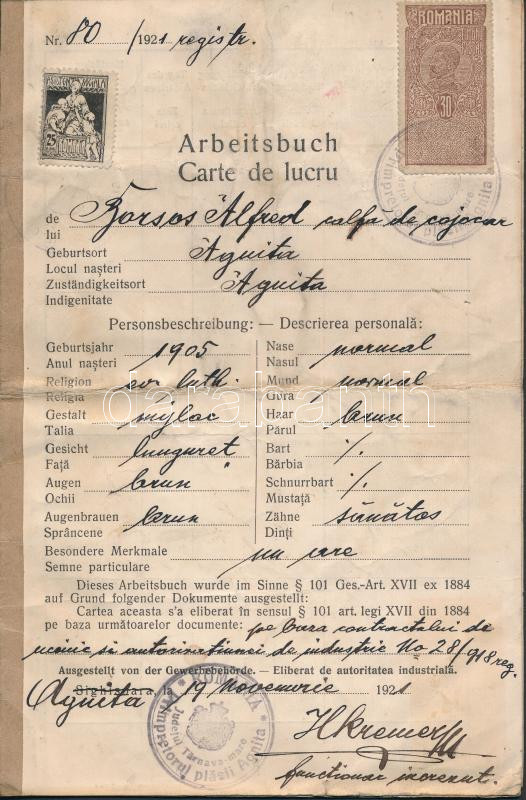 Nr. 80 /1921 registr.
ROMANIA
30
25
Arbeitsbuch
Carte de lucru
de
lui
Borsos Alfred calfa de cojocar
Geburtsort
Locul nașteri
Agnita
Zuständigkeitsort
Indigenitate
Agnita
Personsbeschreibung: — Descrierea personală:
Geburtsjahr
Anul nașteri
1905
Religion
Religia
ev. luth.
Gestalt
Talia
mijloc
Gesicht
Față
lunguret
Augen
Ochii
brun
Augenbrauen
Sprâncene
brun
Nase
Nasul
normal
Mund
Gora
normal
Haar
Părul
brun
Bart
Bărbia
·/.
Schnurrbart
Mustață
·/.
Zähne
Dinți
sănătos
Besondere Merkmale
Semne particulare
nu are
Dieses Arbeitsbuch wurde im Sinne § 101 Ges.-Art. XVII ex 1884
auf Grund folgender Dokumente ausgestellt:
Cartea aceasta s'a eliberat în sensul § 101 art. legi XVII din 1884
pe baza următoarelor documente: pe baza contractului de
ucenic si autorizatiunei de industrie No 28/918 reg.
Ausgestellt von der Gewerbebehörde. — Eliberat de autoritatea industrială.
Sighișoara, la 19 Novembrie 1921
Agnita
H Kremer
functionar increzut.
ROMÂNIA
Primpretorul plăsii Agnita
Județul Tàrnava-mare
darabanth